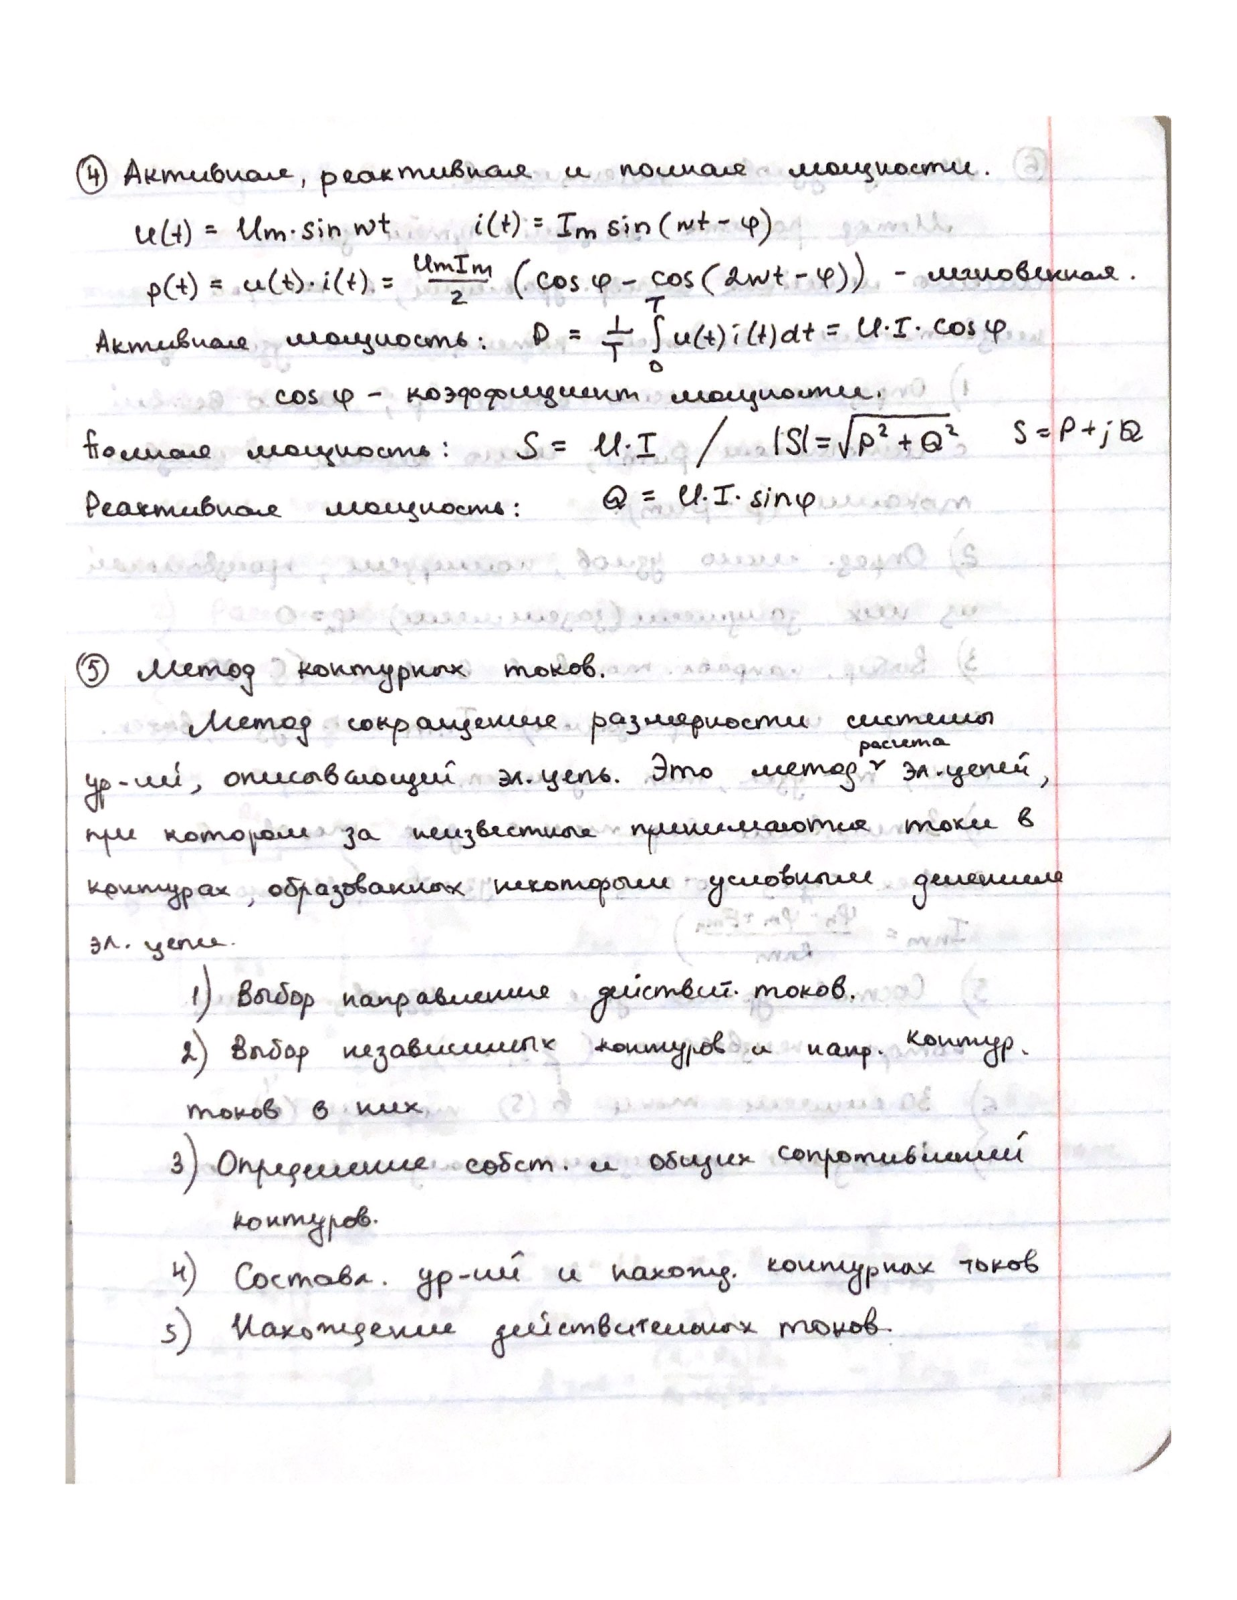 ④ Активная, реактивная и полная мощности.
u(t) = Um·sin wt    i(t) = Im sin(wt - φ)
p(t) = u(t)·i(t) = UmIm/2 (cos φ - cos(2wt - φ)) - мгновенная.
Активная мощность: P = 1/T ∫₀ᵀ u(t)i(t)dt = U·I·cos φ
cos φ - коэффициент мощности.
Полная мощность: S = U·I / |S| = √(P² + Q²)    S = P + jQ
Реактивная мощность: Q = U·I·sinφ
⑤ Метод контурных токов.
Метод сокращения размерности системы
ур-ий, описывающей эл.цепь. Это метод расчета эл.цепей,
при котором за неизвестные принимаются токи в
контурах, образованных некоторым условным делением
эл. цепи.
1) Выбор направления действит. токов.
2) Выбор независимых контуров и напр. контур.
токов в них
3) Определение собст. и общих сопротивлений
контуров.
4) Составл. ур-ий и нахожд. контурных токов
5) Нахождение действительных токов.